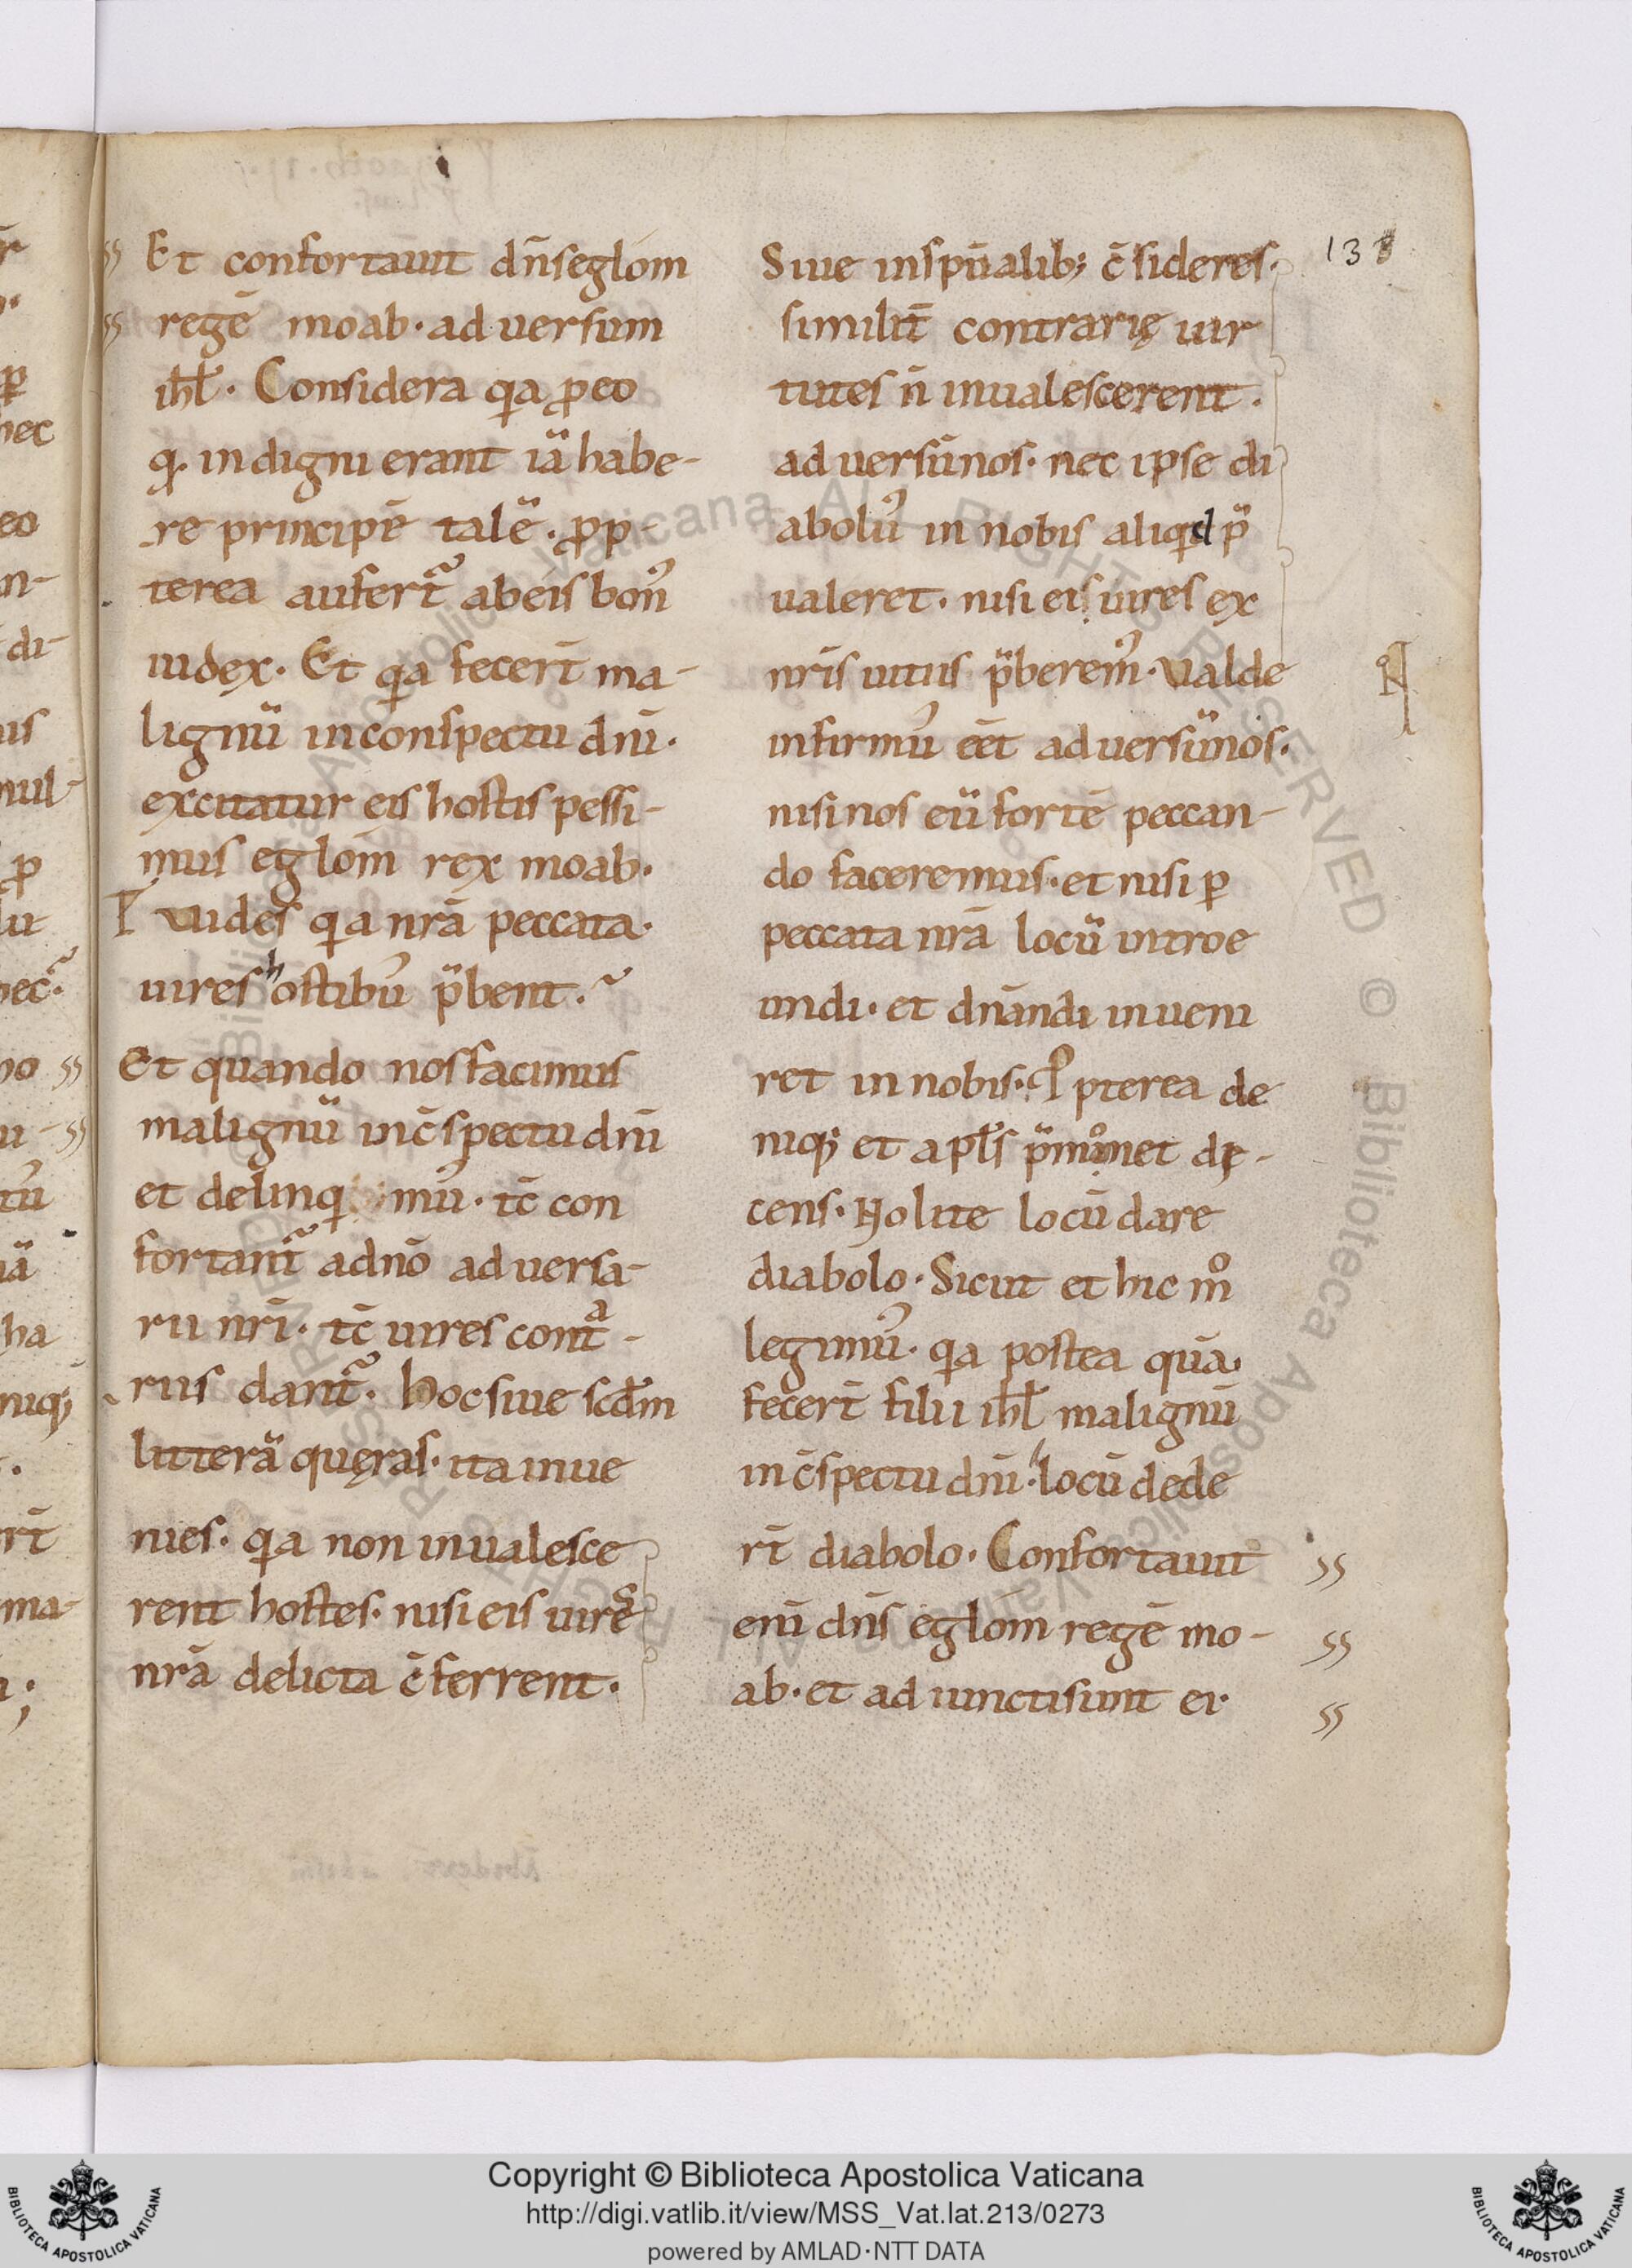 138
Et confortauit dn̄s eglom
regē moab· aduersum
ihl̄· Considera qa ꝓ eo
q· indigni erant iā habe-
re principē talē· ꝓp-
terea aufert̄ ab eis bon᾿
iudex· Et qa fecert̄ ma-
lignū in conspectu dn̄i·
excitatur eis hostis pessi-
mus eglom rex moab·
Vides qa nr̄a peccata·
uires hostibu᾿ p̄bent·
Et quando nos facimus
malignū in c̄spectu dn̄i
et delinq mu᾿· tc̄ con
fortant̄ a dn̄o aduersa-
rii nr̄i· tc̄ uires cont̄ᵃ-
rius dant̄· Hoc siue scd̄m
litterā quęras· ita inue
nies· qa non inualesce
rent hostes· nisi eis uires
nr̄a delicta c̄ferrent·
Siue in spūalib; c̄sideres·
similit̄ contrarię uir
tutes n̄ inualescerent·
aduersū nos· nec ipse di
abolu᾿ in nobis aliqid p̄
ualeret· nisi ei uires ex
nr̄is uitiis p̄berem᾿· Valde
infirmu᾿ eēt aduersū nos·
nisi nos eū fortē peccan-
do faceremus· et nisi ꝑ
peccata nr̄a locū introe
undi· et dn̄andi inueni
ret in nobis· Ꝓpterea de
niq; et apl̄s p̄monet di-
cens· Nolite locū dare
diabolo· Sicut et hic mº
legimu᾿· qa postea quā·
fecert̄ filii ihl̄ malignū
in c̄spectu dn̄i· locū dede
rt̄ diabolo· Confortauit
eni̅ dn̄s eglom regē mo-
ab· et adiuncti sunt ei·
Copyright © Biblioteca Apostolica Vaticana
http://digi.vatlib.it/view/MSS_Vat.lat.213/0273
powered by AMLAD·NTT DATA